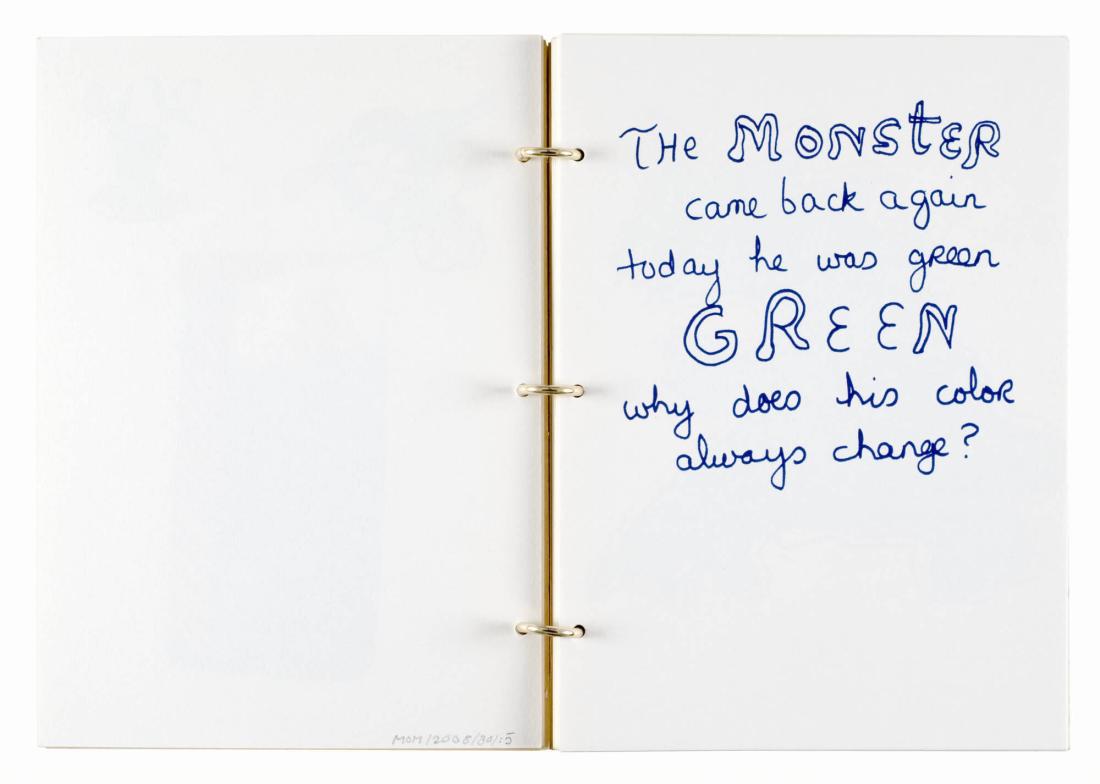 MOM/2008/30/:5
THe MONSteR
came back again
today he was green
GREEN
why does his color
always change?